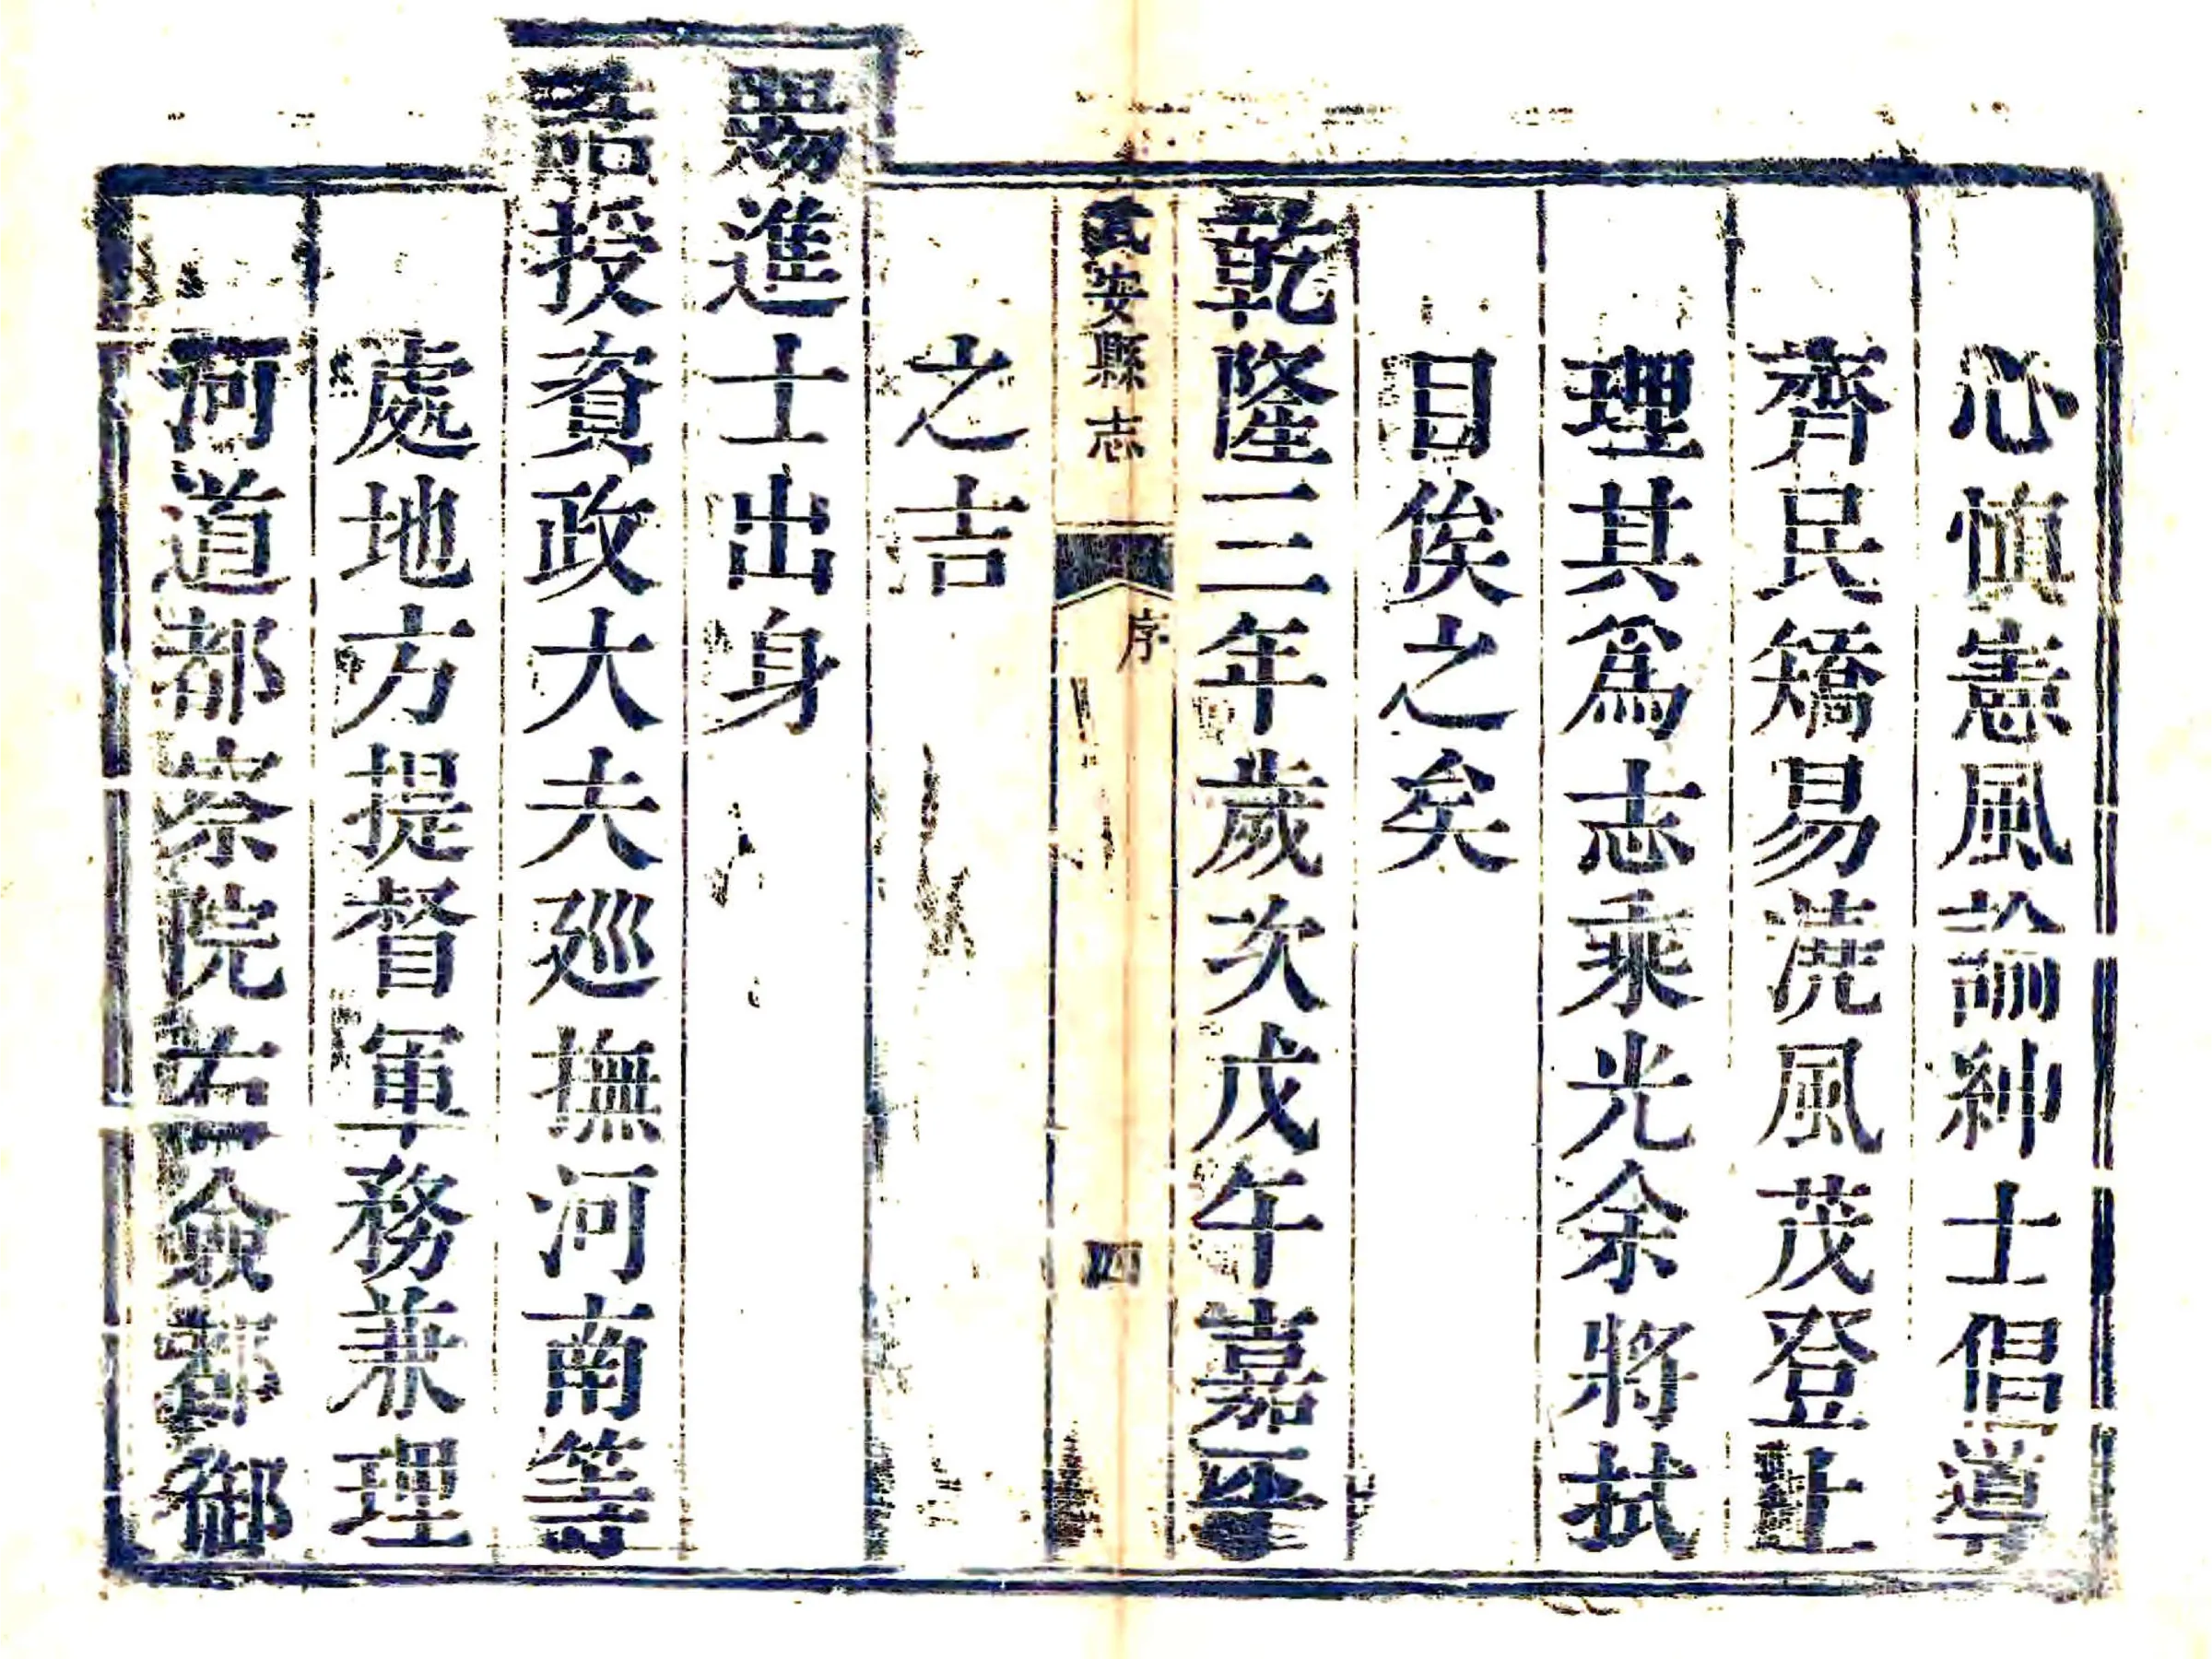 心慎憲風諭紳士倡導
齊民矯易澆風茂登上
理其爲志乘光余將拭
目俟之矣
乾隆三年歲次戊午嘉平
武安縣志 序 四
之吉
賜進士出身
誥授資政大夫廵撫河南等
處地方提督軍務兼理
河道都察院右僉都御